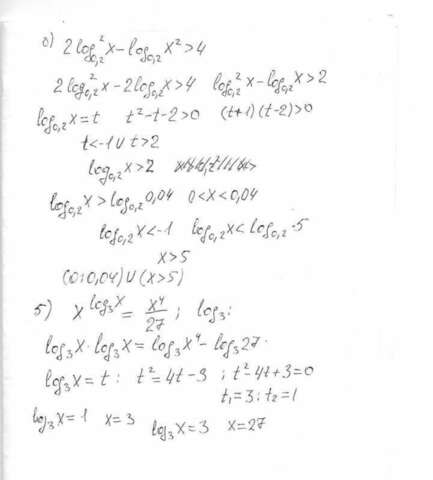 б) 2log²₀,₂x-log₀,₂x²>4
2log²₀,₂x-2log₀,₂x>4 log²₀,₂x-log₀,₂x>2
log₀,₂x=t t²-t-2>0 (t+1)(t-2)>0
t<-1∪t>2
log₀,₂x>2
log₀,₂x>log₀,₂0,04 0<x<0,04
log₀,₂x<-1 log₀,₂x<log₀,₂·5
x>5
(0;0,04)∪(x>5)
5) x^log₃x=x⁴/27; log₃:
log₃x·log₃x=log₃x⁴-log₃27.
log₃x=t: t²=4t-3 ; t²-4t+3=0
t₁=3; t₂=1
log₃x=1 x=3 log₃x=3 x=27